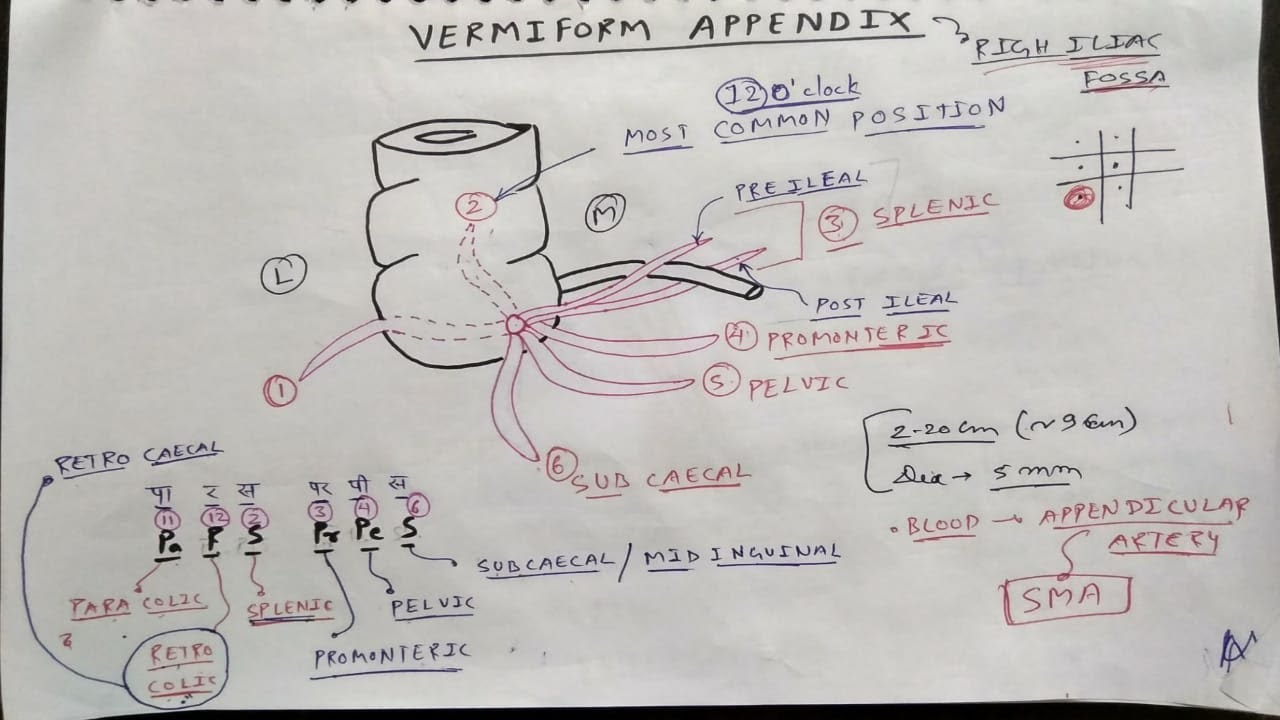 VERMIFORM APPENDIX
RIGH ILIAC
FOSSA
12 O'clock
MOST COMMON POSITION
PRE ILEAL
2
M
3 SPLENIC
L
POST ILEAL
4 PROMONTERIC
1
5 PELVIC
6 SUB CAECAL
2-20 cm (~9 cm)
Dia → 5 mm
• BLOOD → APPENDICULAR
ARTERY
SMA
RETRO CAECAL
पा र स पर पी स
11 12 2 3 4 6
Pa R S Pr Pe S
SUBCAECAL / MID INGUINAL
PARA COLIC
SPLENIC
PELVIC
RETRO
COLIC
PROMONTERIC